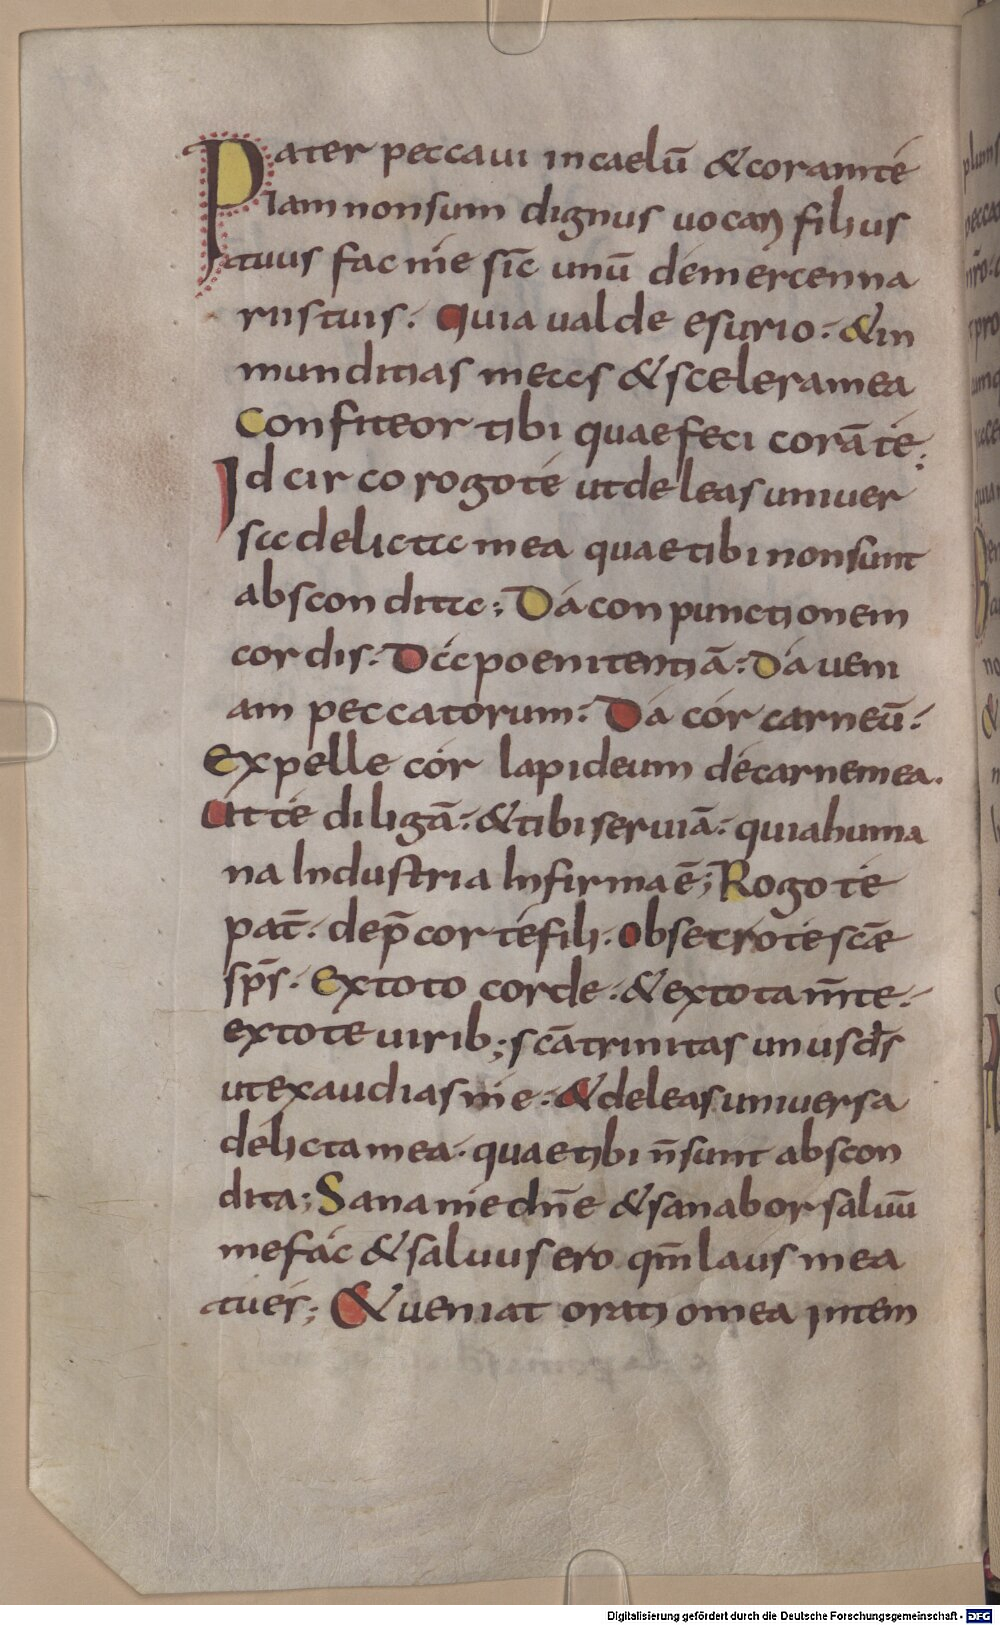 Pater peccaui incaelū &coramté
iamnonsum dignus uocari filius
tuus fac me sic̄ unū demercenna
riistuis. Quia ualde esurio. &in
munditias meas &scelera mea
confiteor tibi quaefeci corāté;
Id circo rogoté utdeleasuniuer
sa delicta mea quaetibi nonsunt
abscondita; Dá conpunctionem
cordis. Dá poenitentiā. Dá ueni
am peccatorum. Dá cór carneū.
Expelle cór lapideum décarnemea.
Utté diligā. &tibiseruiā. quiahuma
na Industria Infirma ē; Rogo té
pat̄. dep̄cor téfili. obsecrotescāe
sp̄s. Extoto corde. &extotam̄te.
extote uirib; scātrinitas unusd̄s
utexaudiasme. &deleasuniuersa
delictamea. quaetibi n̄sunt abscon
dita; Sana me dn̄e &sanabor saluū
mefác &saluus ero qm̄laus mea
tués; &ueniat oratiomea intem
Digitalisierung gefördert durch die Deutsche Forschungsgemeinschaft - DFG